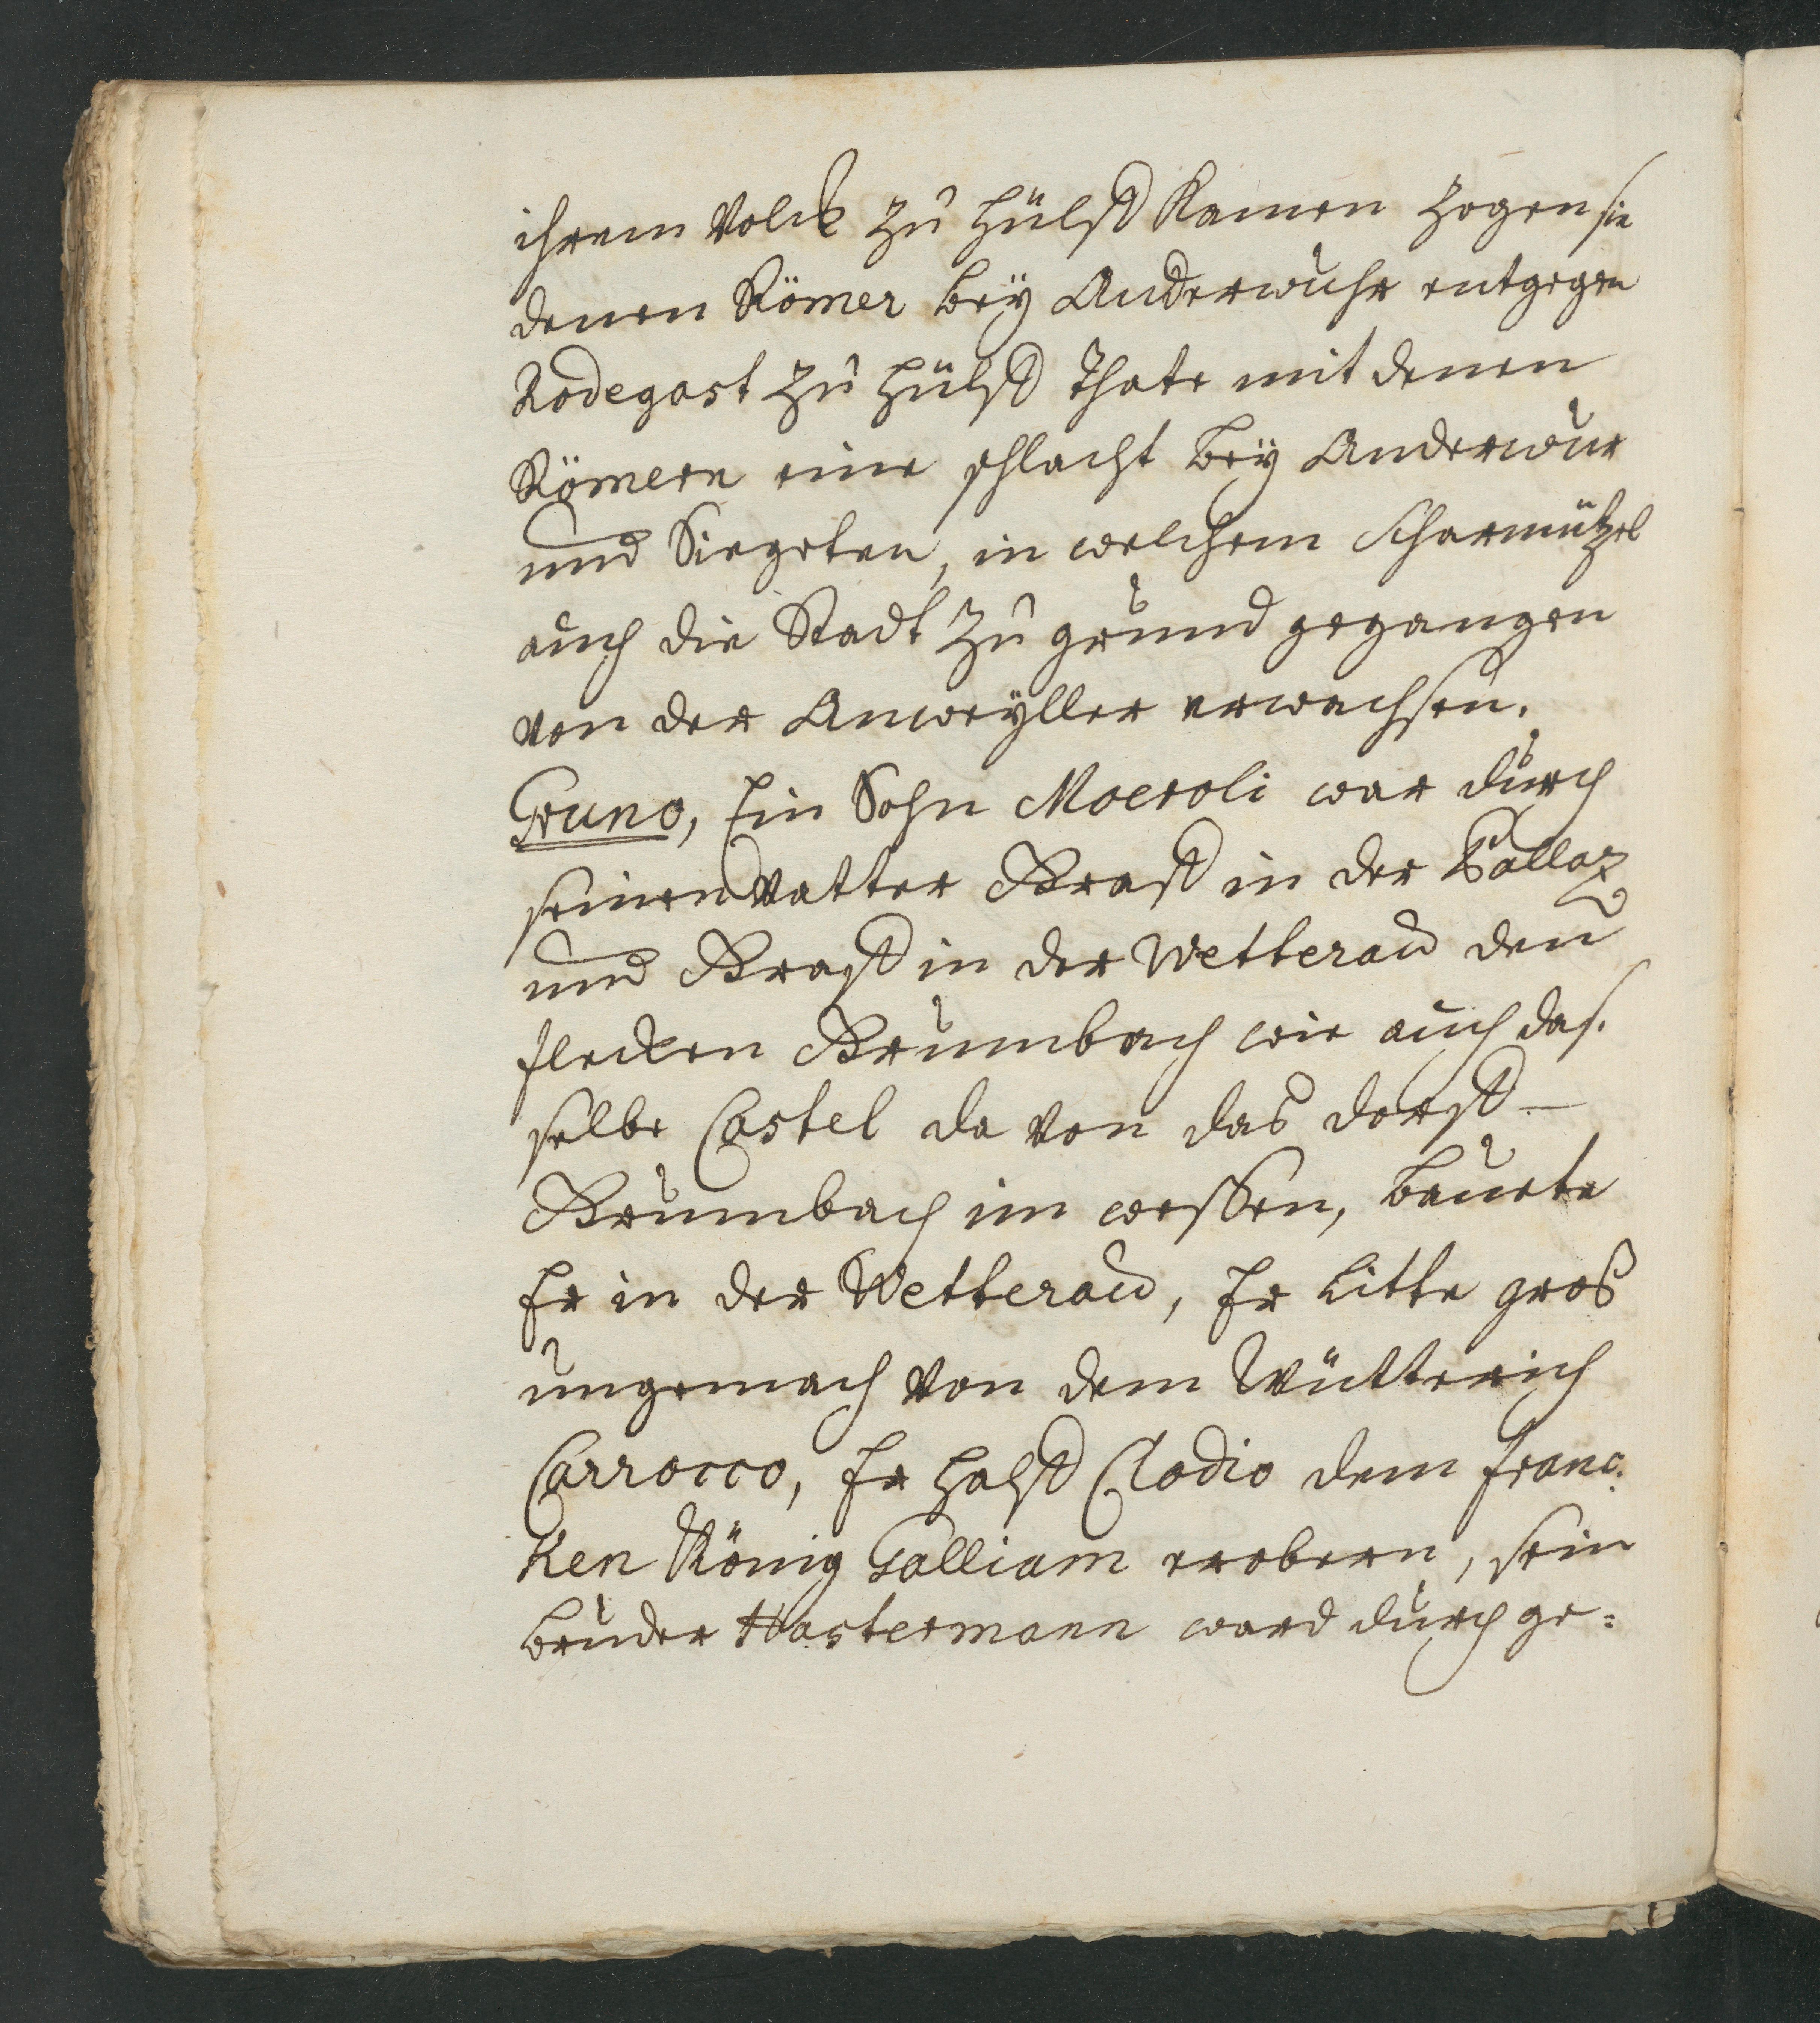 ihrem Volck zu hülff kamen zogen sie
denen Römer bey Anderwuhr entgegen
Rodegast zu hülff thate mit denen
Römern eine schlacht bey Anderwur
und Siegeten, in welchem Scharmützel
auch die Stadt zu grund gegangen
von der Anweyller erwachsen.
Gruno, Ein Sohn Moeroli war durch
seinen Vatter Graff in der Pallaz
und Graff in der Wetterau den
flecken Grumbach wie auch das
selbe Castel da von das dorff
Grumbach im wessen, bauete
Er in der Wetterau, Er litte gros
ungemach von dem Wütterich
Carrocco, Er halff Clodio dem franc:
ken König Galliam erobern, sein
bruder Hastermann ward durch ge=